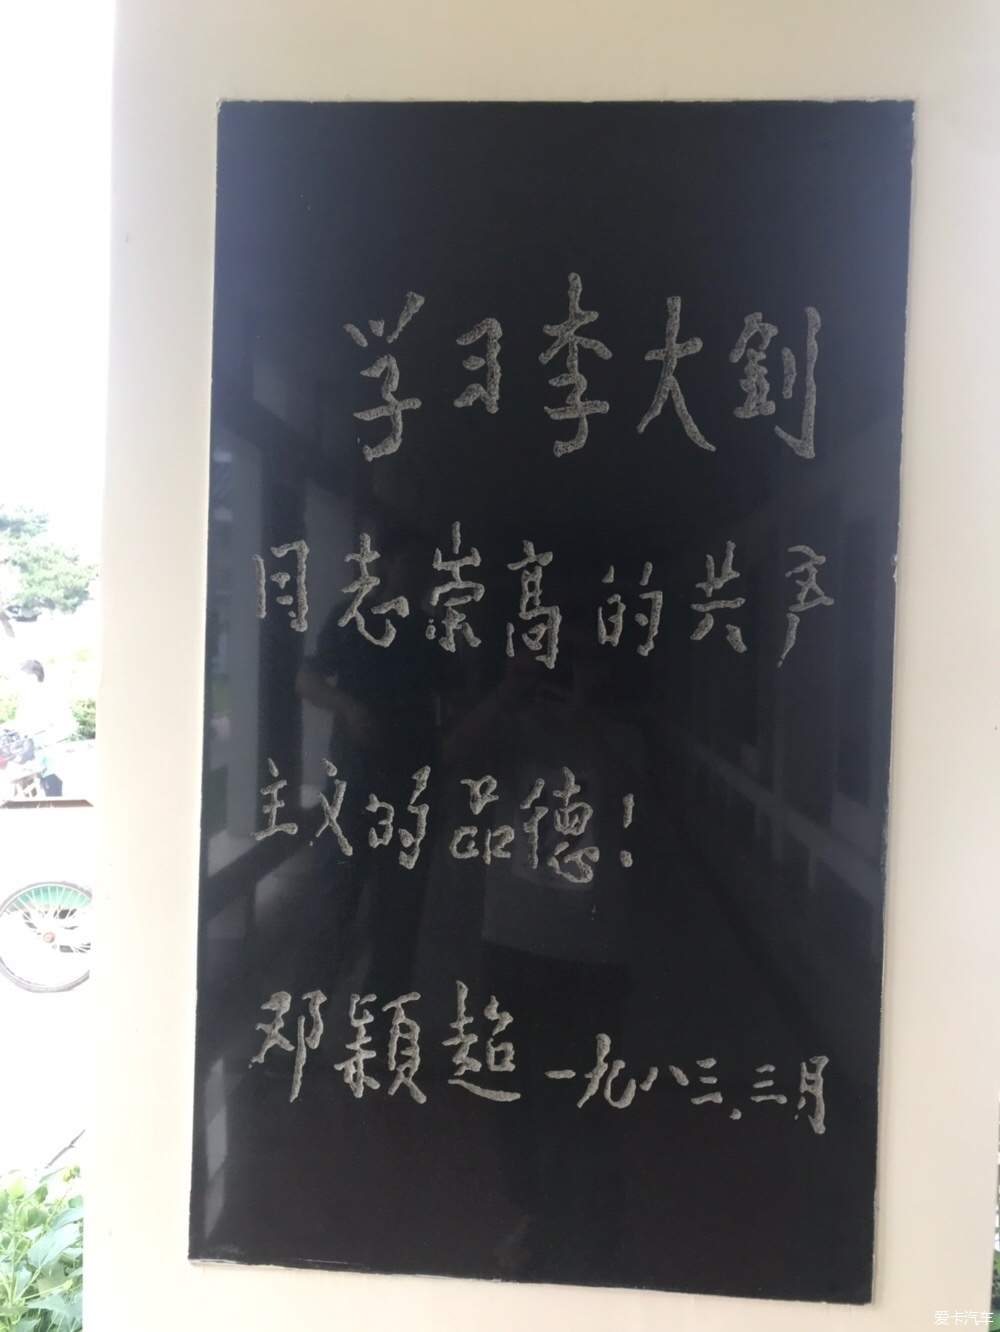 学习李大釗
同志崇高的共产
主义的品德！
邓颖超 一九八三.三月
爱卡汽车